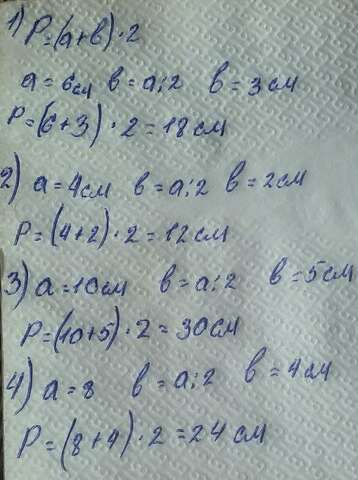 1) P=(a+b)·2
a=6см b=a:2 b=3см
P=(6+3)·2=18см
2) a=4см b=a:2 b=2см
P=(4+2)·2=12см
3) a=10см b=a:2 b=5см
P=(10+5)·2=30см
4) a=8 b=a:2 b=4см
P=(8+4)·2=24см